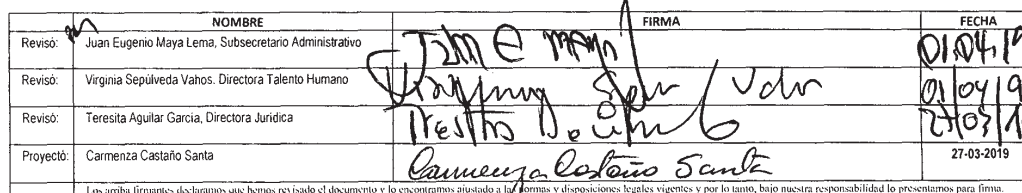 NOMBRE FIRMA FECHA
Revisó: Juan Eugenio Maya Lema, Subsecretario Administrativo 01.04.19
Revisó: Virginia Sepúlveda Vahos. Directora Talento Humano 01/04/9
Revisó: Teresita Aguilar García, Directora Jurídica 27/03/1
Proyectó: Carmenza Castaño Santa Carmenza Castaño Santa 27-03-2019
Los arriba firmantes declaramos que hemos revisado el documento y lo encontramos ajustado a las normas y disposiciones legales vigentes y por lo tanto, bajo nuestra responsabilidad lo presentamos para firma.